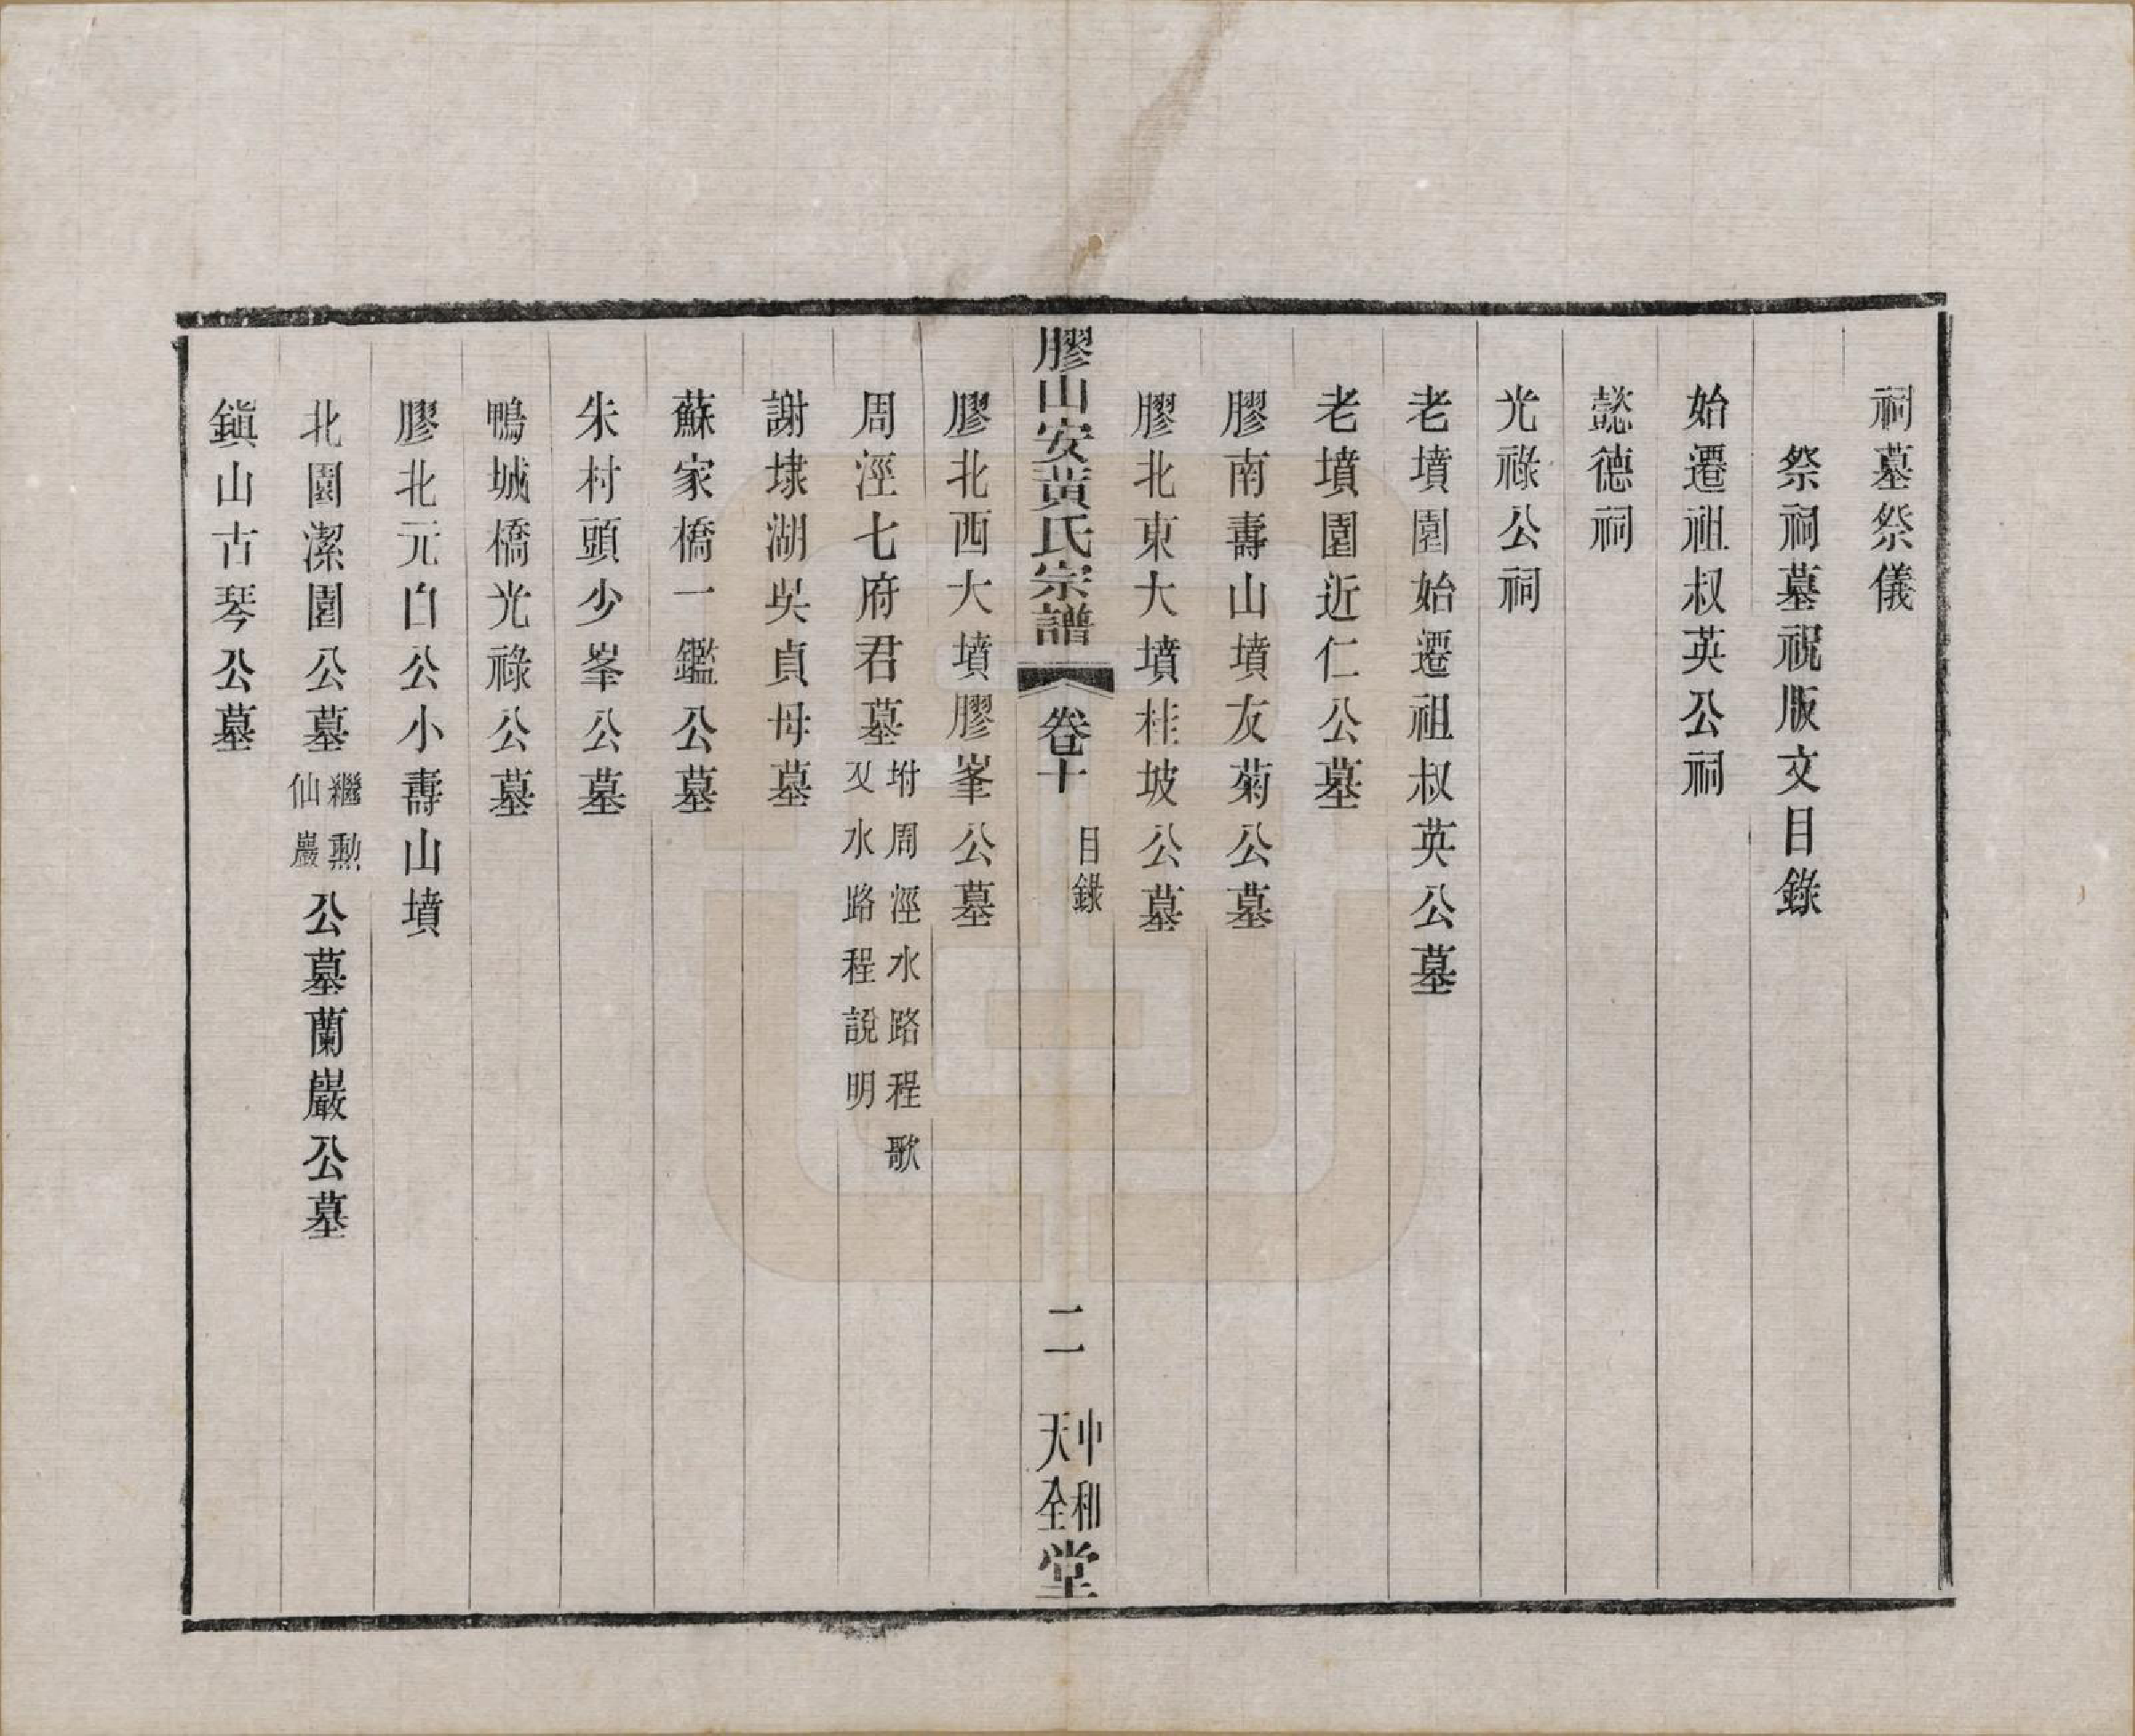 祠墓祭儀
祭祠墓祝版文目錄
始遷祖叔英公祠
懿德祠
光祿公祠
老墳園始遷祖叔英公墓
老墳園近仁公墓
膠南壽山墳友菊公墓
膠北東大墳桂坡公墓
膠山安黃氏宗譜
卷十
目錄
二
中和
天全
堂
膠北西大墳膠峯公墓
周涇七府君墓
坿周涇水路程歌
又水路程說明
謝埭湖吳貞母墓
蘇家橋一鑑公墓
朱村頭少峯公墓
鴨城橋光祿公墓
膠北元白公小壽山墳
北園潔園公墓
繼勳
仙巖
公墓蘭巖公墓
鎮山古琴公墓